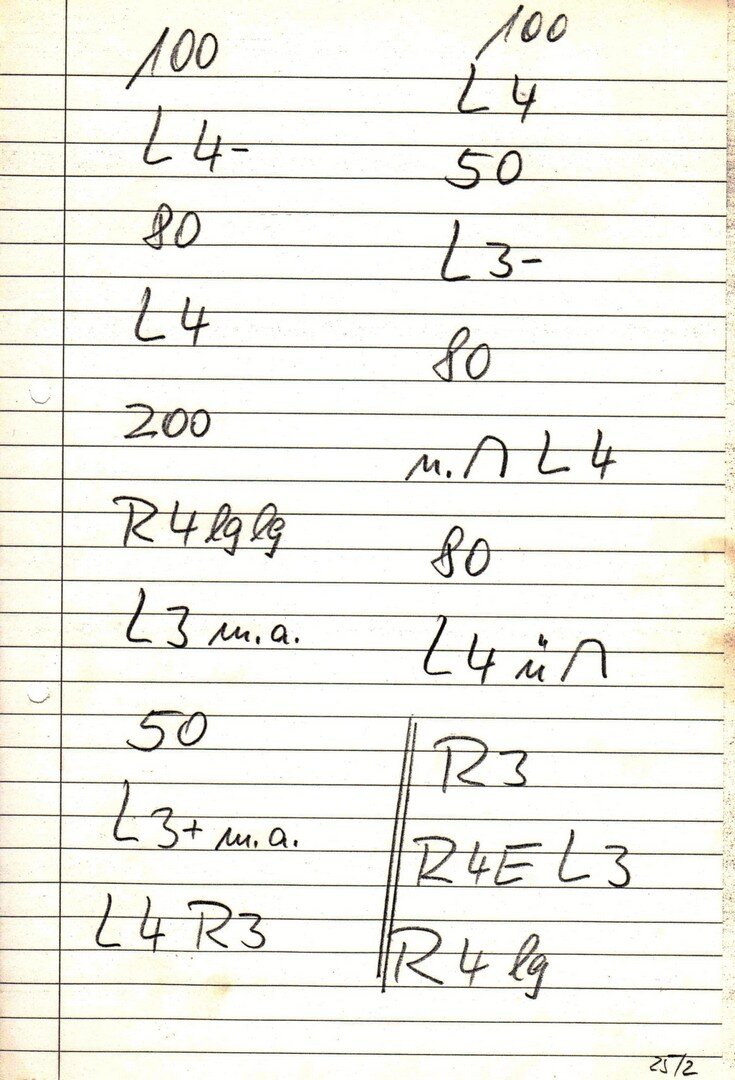 100
L 4-
80
L 4
200
R 4 lg lg
L 3 m.a.
50
L 3+ m.a.
L 4 R 3
100
L 4
50
L 3-
80
n. ∩ L 4
80
L 4 ü ∩
R 3
R 4 E L 3
R 4 lg
25/2